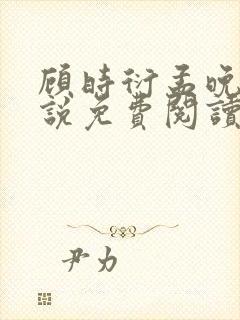 顾时衍孟晚
說免費閱讀
尹力